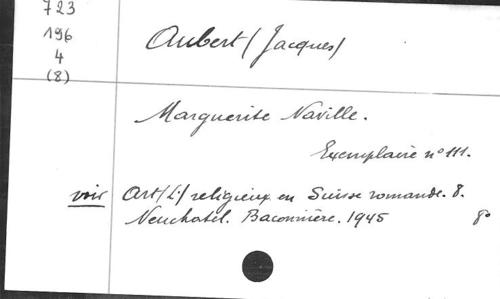 723
196
4
(8)
Aubert (Jacques)
Marguerite Naville.
Exemplaire n° 111.
voir Art (L') religieux en Suisse romande. 8.
Neuchatel. Baconnière. 1945 8°